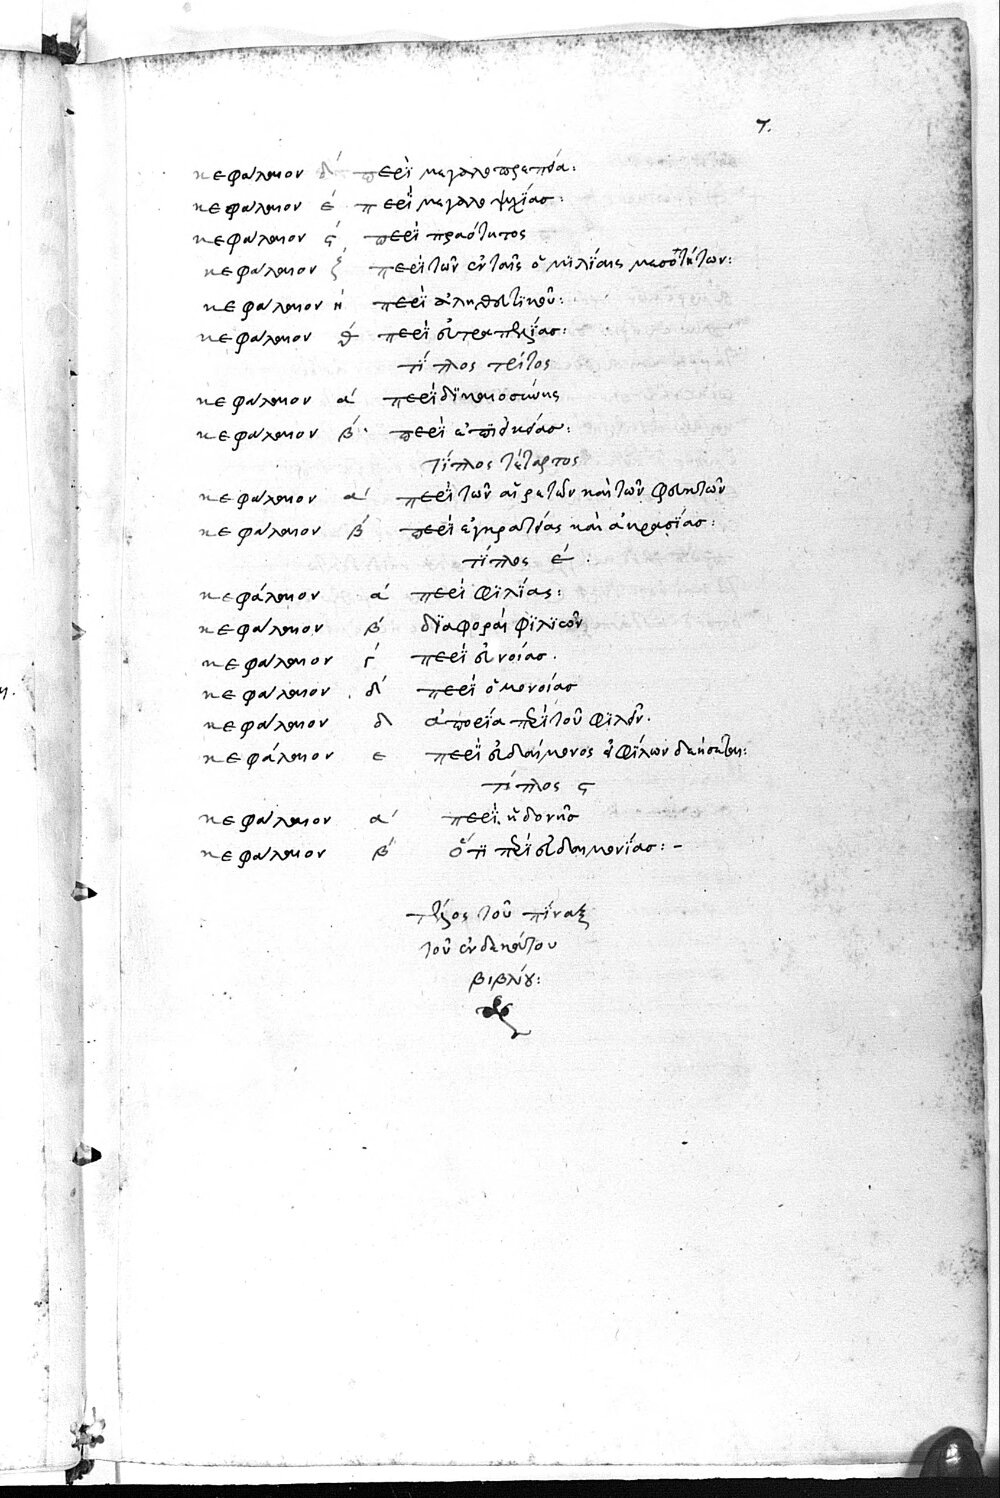 7.
κεφάλαιον δ´ περὶ μεγαλοπρεπείας:
κεφάλαιον έ περὶ μεγαλοψυχίας:
κεφάλαιον ς´ περὶ πραότητος
κεφάλαιον ζ´ περὶ τῶν ἐν ταῖς ὁμιλίαις μεσοτήτων:
κεφάλαιον ή περὶ ἀληθευτικοῦ:
κεφάλαιον θ´ περὶ εὐτραπελίας:
τίτλος τρίτος
κεφάλαιον ά περὶ δικαιοσύνης
κεφάλαιον β´ περὶ ἐπιεικείας:
τίτλος τέταρτος
κεφάλαιον ά περὶ τῶν αἱρετῶν καὶ τῶν φευκτῶν
κεφάλαιον β´ περὶ ἐγκρατείας καὶ ἀκρασίας:
τίτλος έ.
κεφάλαιον ά περὶ φιλίας:
κεφάλαιον β´ διαφοραὶ φιλικῶν
κεφάλαιον γ´ περὶ εὐνοίας.
κεφάλαιον δ´ περὶ ὁμονοίας
κεφάλαιον δ ἀπορία περὶ τοῦ φιλεῖν.
κεφάλαιον ε περὶ εὐδαίμονος εἰ φίλων δεήσεται:
τίτλος ς
κεφάλαιον α´ περὶ ἡδονῆς
κεφάλαιον β´ ὅτι περὶ εὐδαιμονίας: –
τέλος τοῦ πίναξ
τοῦ ἑνδεκάτου
βιβλίου: